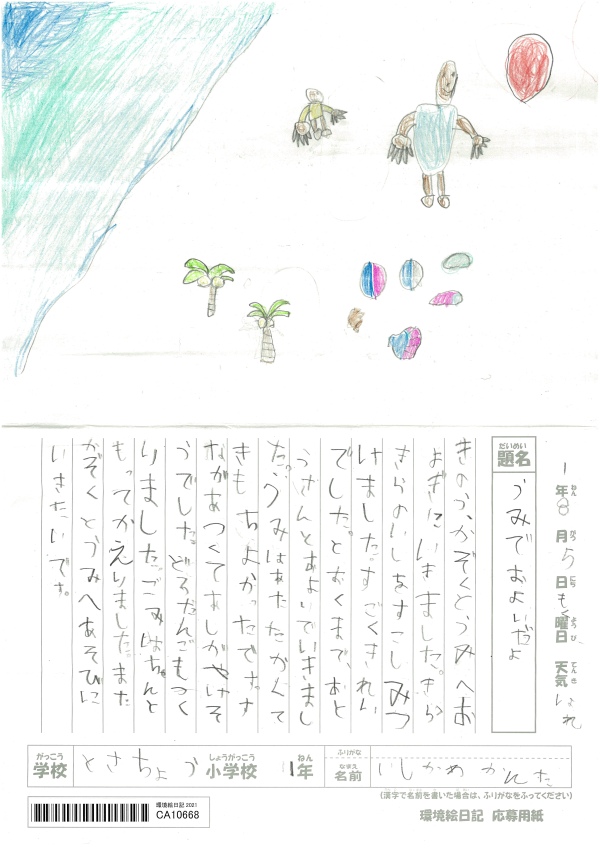 1年8月5日もく曜日 天気 はれ
ねん がつ にち ようび てんき
だいめい
題名
うみでおよいだよ
きのう、かぞくとうみへお
よぎにいきました。きら
きらのいしをすこしみつ
けました。すごくきれい
でした。とおくまで、おと
うさんとおよいでいきまし
た。うみはあたたかくて
きもちよかったです。す
ながあつくてあしがやけそ
うでした。どろだんごもつく
りました。ごみはちゃんと
もってかえりました。また
かぞくとうみへあそびに
いきたいです。
がっこう
学校
とさちょう
しょうがっこう
小学校
1年
ねん
ふりがな
なまえ
名前
いしかわ かんた
(漢字で名前を書いた場合は、ふりがなをふってください)
環境絵日記 2021
CA10668
環境絵日記 応募用紙